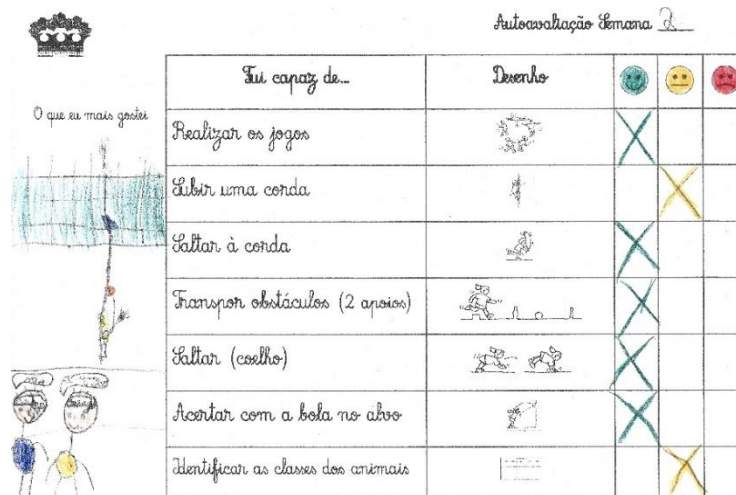 Autoavaliação Semana 2
Fui capaz de...
Desenho
O que eu mais gostei
Realizar os jogos
Subir uma corda
Saltar à corda
Transpor obstáculos (2 apoios)
Saltar (coelho)
Acertar com a bola no alvo
Identificar as classes dos animais